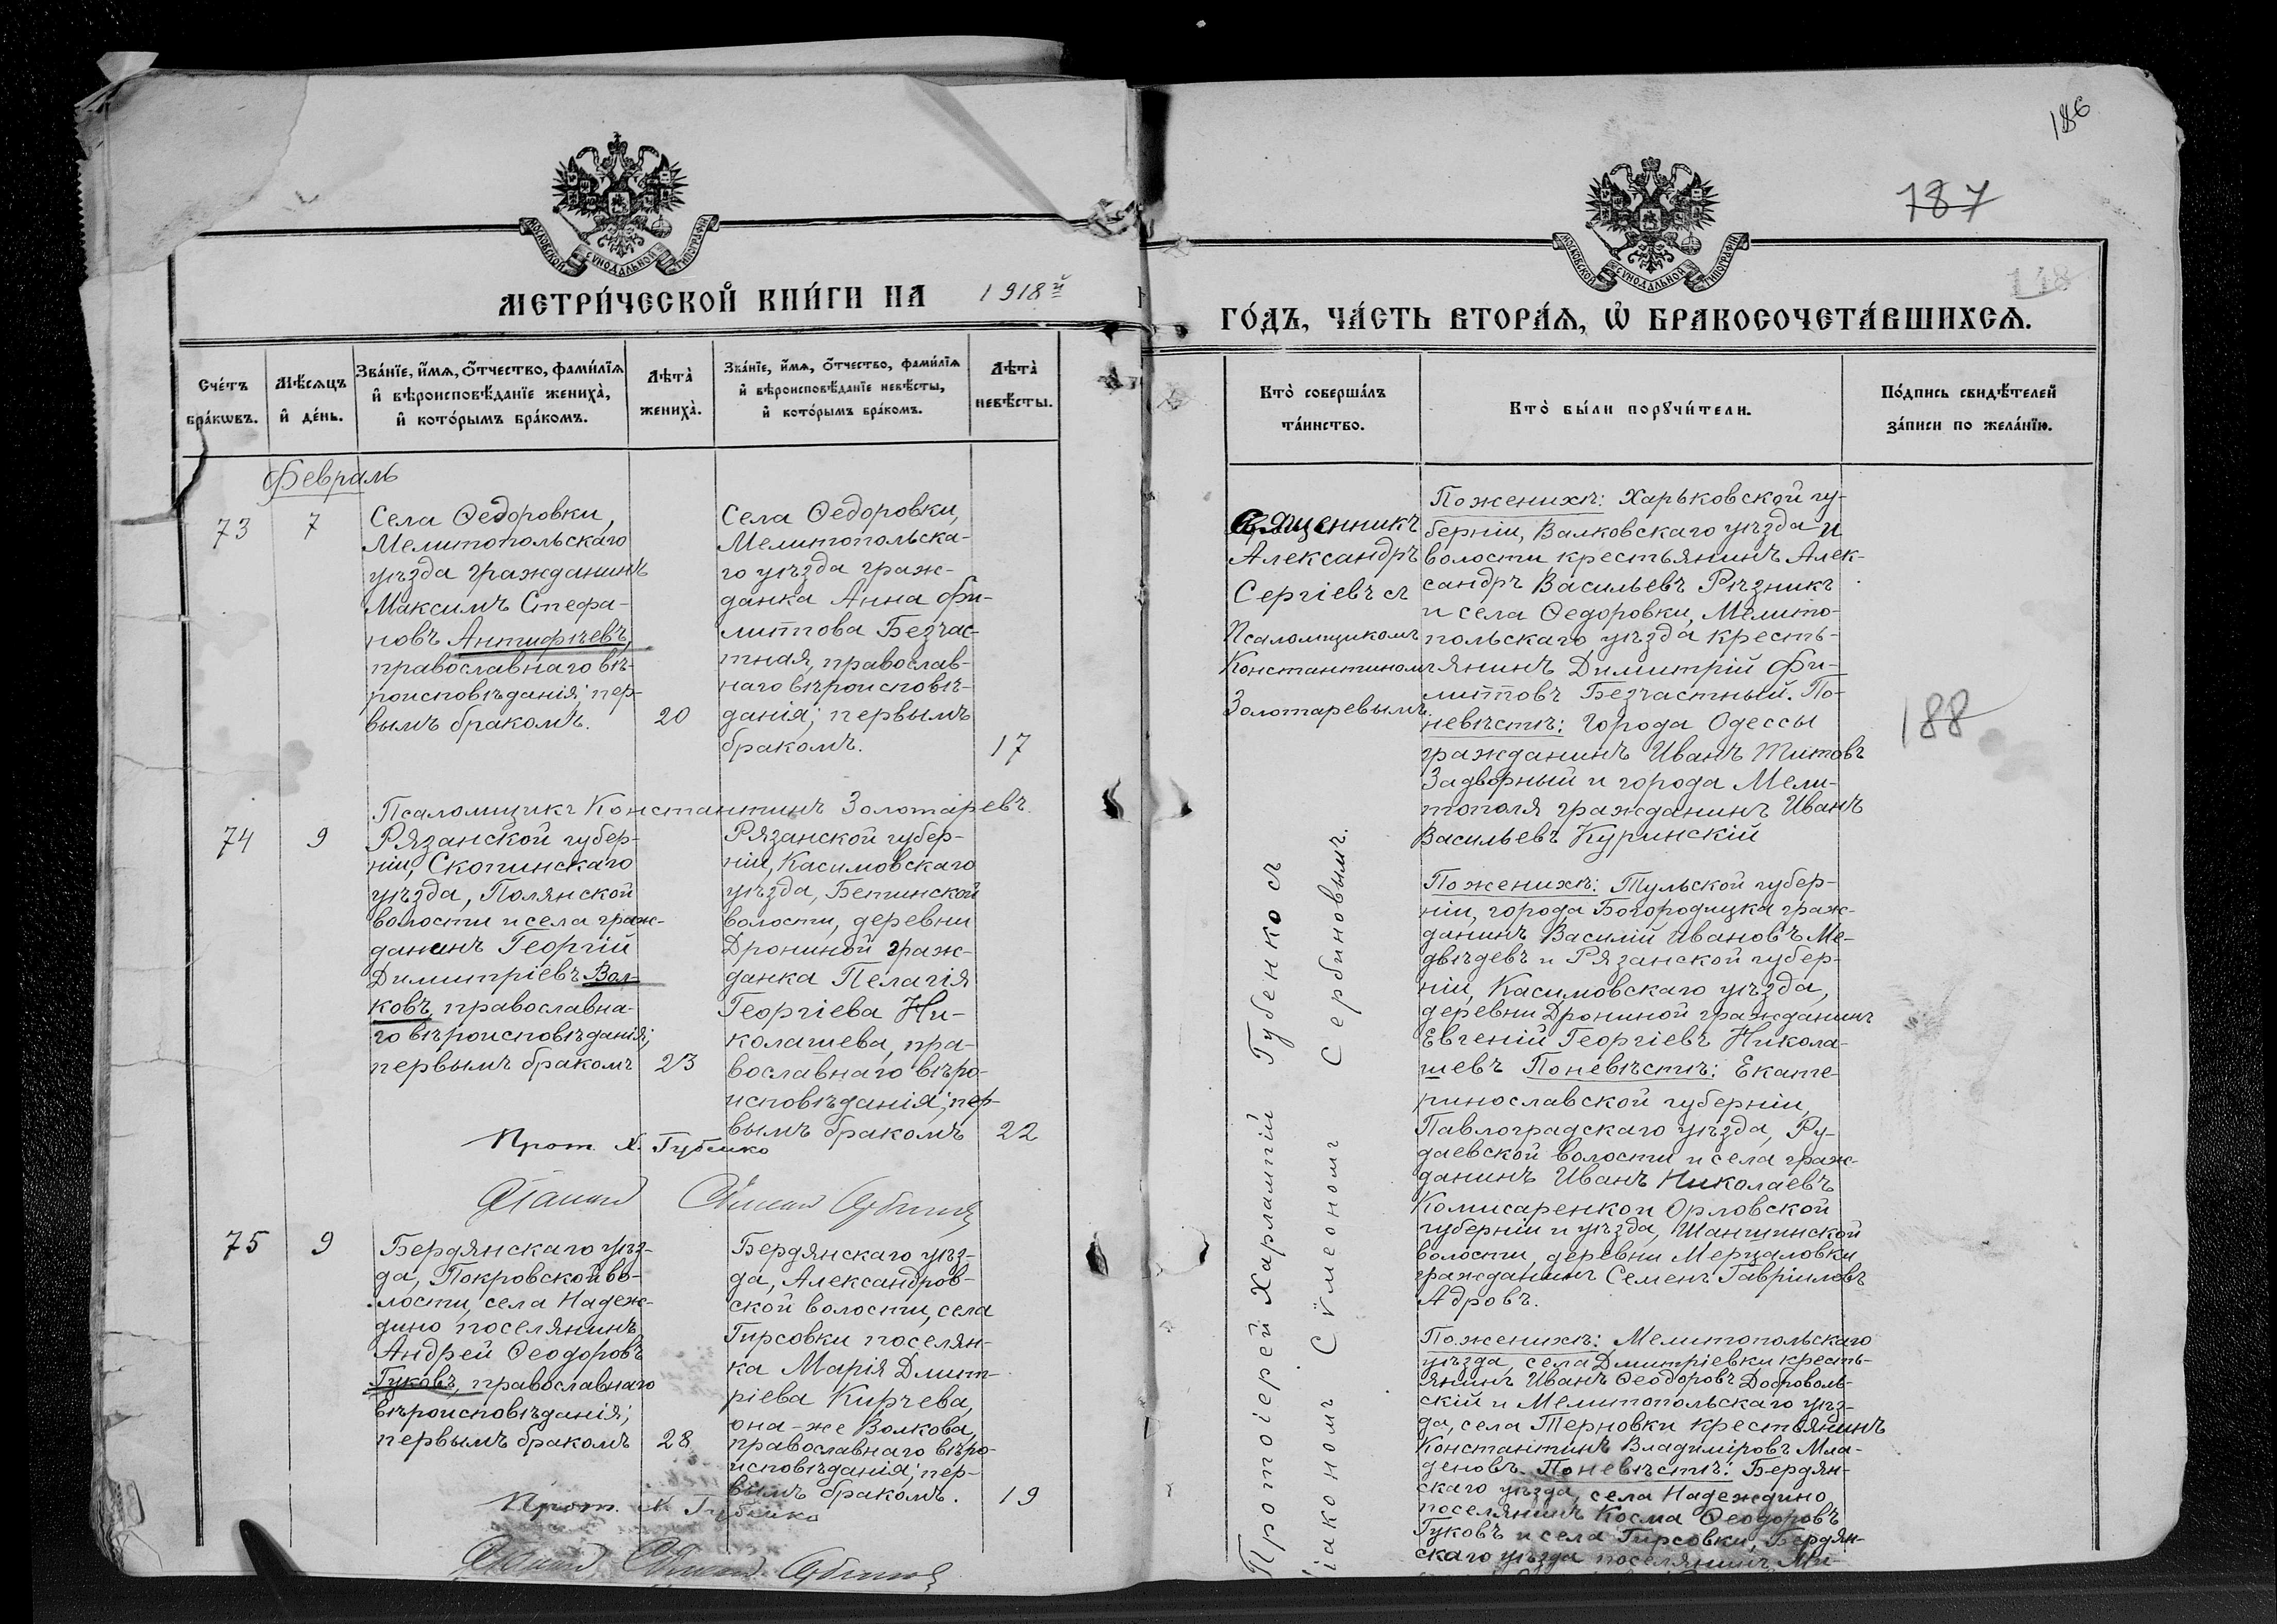 186
187
148
МОСКОВСКОЙ СѴНОДАЛЬНОЙ ТИПОГРАФІИ
МОСКОВСКОЙ СѴНОДАЛЬНОЙ ТИПОГРАФІИ
МЕТРИ́ЧЕСКОЙ КНИ́ГИ НА 1918й
ГО́ДЪ, ЧА́СТЬ ВТОРА́Ѧ, Ѡ҆ БРАКОСОЧЕТА́ВШИХСѦ.
Сче́тъ
бра́кѡвъ.
Мѣ́сѧцъ
и҆ де́нь.
Зва́нїе, и҆́мѧ, о҆́тчество, фами́лїѧ
и҆ вѣроисповѣ́данїе жениха̀,
и҆ кото́рымъ бра́комъ.
Лѣта̀
жениха̀.
Зва́нїе, и҆́мѧ, о҆́тчество, фами́лїѧ
и҆ вѣроисповѣ́данїе невѣ́сты,
и҆ кото́рымъ бра́комъ.
Лѣта̀
невѣ́сты.
Кто̀ соверша́лъ
та́инство.
Кто̀ бы́ли порꙋчи́тели.
По́дпись свидѣ́телей
за́писи по жела́нїю.
Февраль
73
7
Села Ѳедоровки,
Мелитопольскаго
уѣзда гражданинъ
Максимъ Стефа-
новъ Антифѣевъ,
православнаго вѣ-
роисповѣданія; пер-
вымъ бракомъ.
20
Села Ѳедоровки,
Мелитопольска-
го уѣзда граж-
данка Анна Фи-
липпова Безчас-
тная, православ-
наго вѣроисповѣ-
данія; первымъ
бракомъ.
17
Псаломщикъ Константинъ Золотаревъ.
Священникъ
Александръ
Сергіевъ съ
Псаломщикомъ
Константиномъ
Золотаревымъ.
По женихѣ: Харьковской гу-
берніи, Валковскаго уѣзда и
волости крестьянинъ Алек-
сандръ Васильевъ Рѣзникъ
и села Ѳедоровки, Мелито-
польскаго уѣзда кресть-
янинъ Димитрій Фи-
липповъ Безчастный. По
невѣстѣ: города Одессы
гражданинъ Иванъ Титовъ
Задворный и города Мели-
тополя гражданинъ Иванъ
Васильевъ Куринскій
188
74
9
Рязанской губер-
ніи, Скопинскаго
уѣзда, Полянской
волости и села граж-
данинъ Георгій
Димитріевъ Вол-
ковъ, православна-
го вѣроисповѣданія;
первымъ бракомъ
23
Рязанской губер-
ніи, Касимовскаго
уѣзда, Бетинской
волости, деревни
Дрониной граж-
данка Пелагія
Георгіева Ни-
колашева, пра-
вославнаго вѣро-
исповѣданія; пер-
вымъ бракомъ
22
Прот. Х. Губенко
Протоіерей Харлампій Губенко съ
іакономъ Сѵмеономъ Сербиновымъ.
По женихѣ: Тульской губер-
ніи, города Богородицка граж-
данинъ Василій Ивановъ Ме-
двѣдевъ и Рязанской губер-
ніи, Касимовскаго уѣзда,
деревни Дрониной гражданинъ
Евгеній Георгіевъ Никола-
шевъ По невѣстѣ: Екате-
ринославской губерніи,
Павлоградскаго уѣзда, Ру-
даевской волости и села граж-
данинъ Иванъ Николаевъ
Комисаренко и Орловской
губерніи и уѣзда, Шаншинской
волости, деревни Мерцаловки
гражданинъ Семенъ Гавріиловъ
Адровъ.
75
9
Бердянскаго уѣз-
да, Покровской во-
лости, села Надеж-
дино поселянинъ
Андрей Ѳеодоровъ
Гуковъ, православнаго
вѣроисповѣданія;
первымъ бракомъ
28
Бердянскаго уѣз-
да, Александров-
ской волости, села
Гирсовки поселян-
ка Марія Дмит-
ріева Кирчева,
она-же Волкова,
православнаго вѣро-
исповѣданія; пер-
вымъ бракомъ.
19
Прот. Х Губенко
По женихѣ: Мелитопольскаго
уѣзда, села Дмитріевки кресть-
янинъ Иванъ Ѳеодоровъ Доброволь-
скій и Мелитопольскаго уѣз-
да, села Терновки крестьянинъ
Константинъ Владиміровъ Мла-
деновъ. По невѣстѣ: Бердян-
скаго уѣзда, села Надеждино
поселянинъ Косма Ѳеодоровъ
Гуковъ и села Гирсовки, Бердян-
скаго уѣзда поселянинъ Ми-